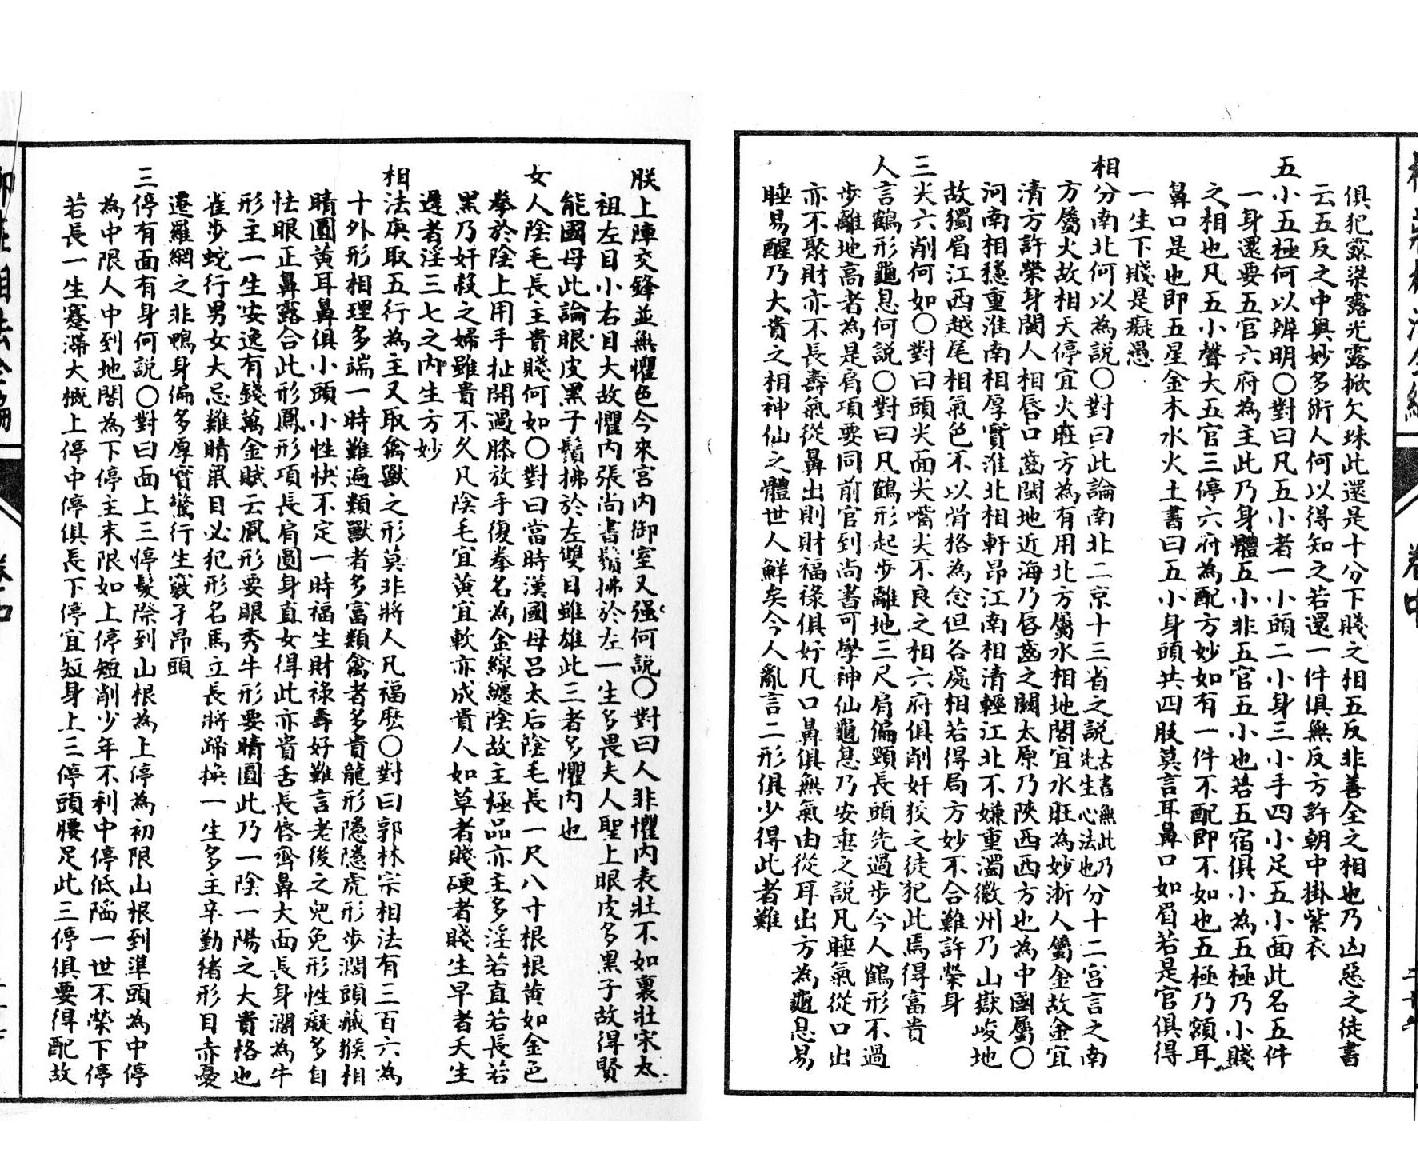 俱犯露梁露光露掀欠珠此還是十分下賤之相五反非善全之相也乃凶惡之徒書
云五反之中輿妙多術人何以得知之若還一件俱無反方許朝中掛紫衣
五小五極何以辨明〇對曰凡五小者一小頭二小身三小手四小足五小面此名五件
一身還要五官六府為主此乃身體五小非五官五小也若五宿俱小為五極乃小賤
之相也凡五小聲大五官三停六府為配方妙如有一件不配即不如也五極乃額耳
鼻口是也即五星金木水火土書曰五小身頭共四肢莫言耳鼻口如眉若是官俱得
一生下賤是癡愚
相分南北何以為說〇對曰此論南北二京十三省之說古書無此乃先生心法也分十二宮言之南
方屬火故相天停宜火旺方為有用北方屬水相地閣宜水旺為妙浙人屬金故金宜
清方許榮身閩人相唇口齒閩地近海乃唇齒之關太原乃陝西西方也為中國屬〇
河南相穩重淮南相厚實淮北相軒昂江南相清輕江北不嫌重濁徽州乃山嶽峻地
故獨眉江西越尾相氣色不以骨格為念但各處相若得局方妙不合難許榮身
三尖六削何如〇對曰頭尖面尖嘴尖不良之相六府俱削奸狡之徒犯此焉得富貴
人言鶴形龜息何說〇對曰凡鶴形起步離地三尺肩偏頸長頭先過步今人鶴形不過
步離地高者為是肩項要同前官到尚書可學神仙龜息乃安垂之說凡睡氣從口出
亦不聚財亦不長壽氣從鼻出則財福祿俱好凡口鼻俱無氣由從耳出方為龜息易
睡易醒乃大貴之相神仙之體世人鮮矣今人亂言二形俱少得此者難
朕上陣交鋒並無懼色今來宮內御室又强何說〇對曰人非懼內表壯不如裏壯宋太
祖左目小右目大故懼內張尚書鬚拂於左一生多畏夫人聖上眼皮多黑子故得賢
能國母此論眼皮黑子鬚拂於左雙目雖雄此三者多懼內也
女人陰毛長主貴賤何如〇對曰當時漢國母呂太后陰毛長一尺八寸根根黃如金色
拳於陰上用手扯開過膝放手復拳名為金線纏陰故主極品亦主多淫若直若長若
黑乃奸殺之婦雖貴不久凡陰毛宜黃宜軟亦成貴人如草者賤硬者賤生早者夭生
遲者淫三七之內生方妙
相法庚取五行為主又取禽獸之形莫非將人凡福麽〇對曰郭林宗相法有三百六為
十外形相理多端一時難遍類獸者多富類禽者多貴龍形隱隱虎形步濶頭藏猴相
睛圓黃耳鼻俱小頭小性快不定一時福生財祿壽好難言老後之兜兔形性癡多自
怯眼正鼻露合此形鳳形項長肩圓身直女得此亦貴舌長唇齊鼻大面長身濶為牛
形主一生安逸有錢萬金賦云鳳形要眼秀牛形要睛圓此乃一陰一陽之大貴格也
雀步蛇行男女大忌雞睛鼠目必犯形名馬立長將蹄換一生多主辛勤猪形目赤憂
遭羅網之非鴨身偏多厚實鵞行生竅子昂頭
三停有面有身何說〇對曰面上三停髮際到山根為上停為初限山根到準頭為中停
為中限人中到地閣為下停主末限如上停短削少年不利中停低陷一世不榮下停
若長一生蹇滯大槪上停中停俱長下停宜短身上三停頭腰足此三停俱要得配故